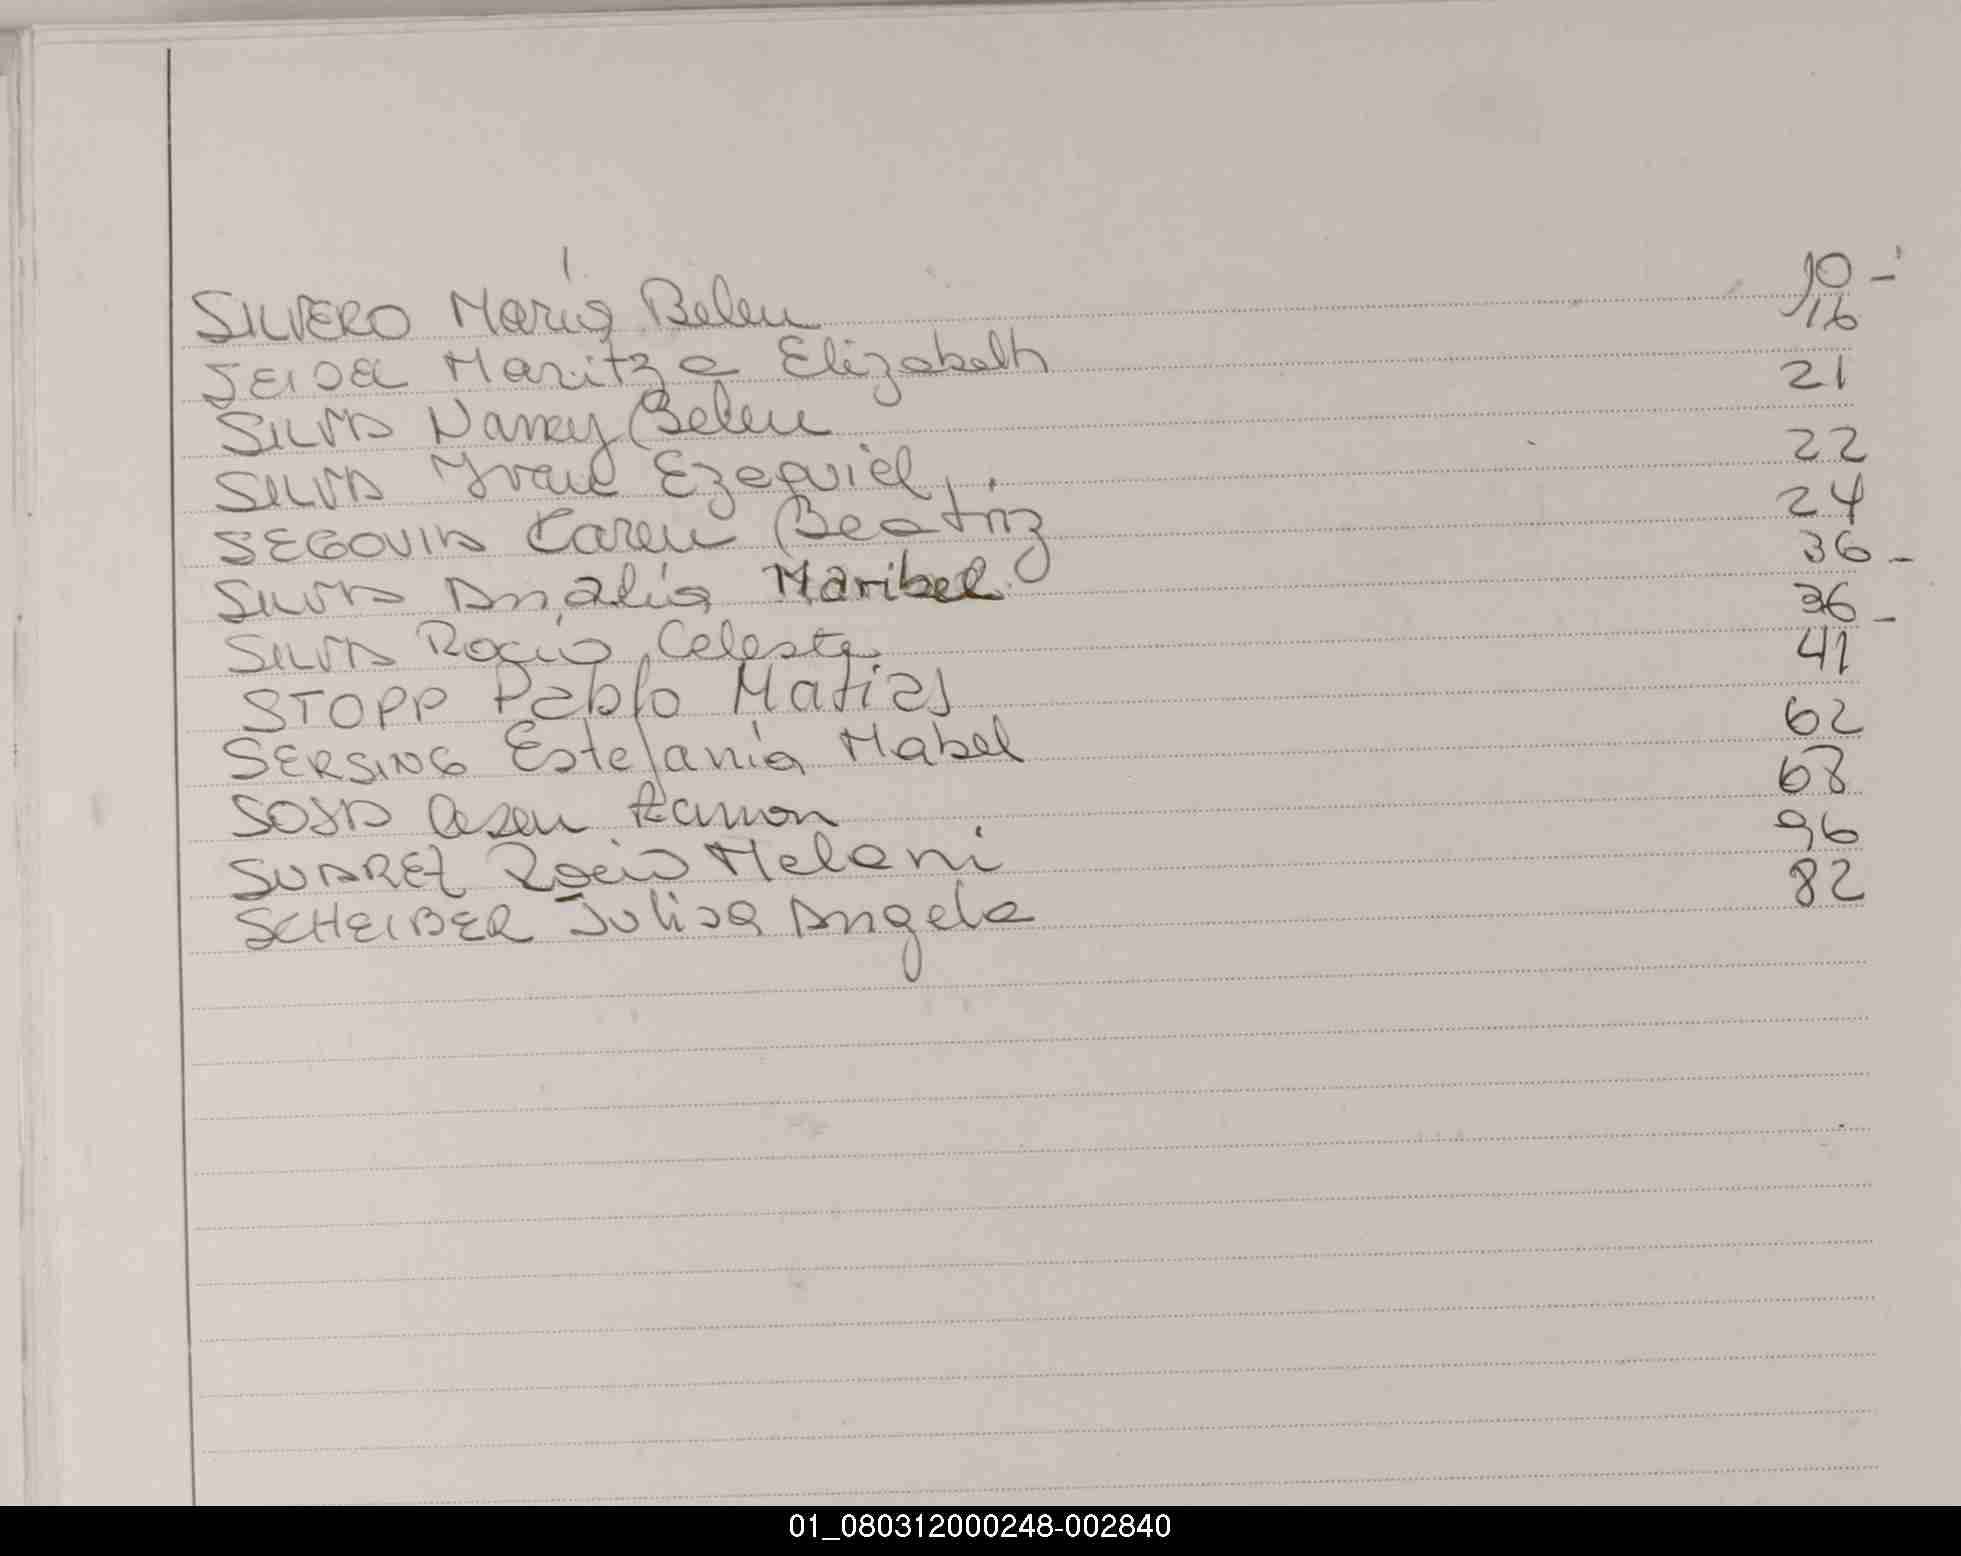 SILVERO María Belen 10 -
SEIDEL Maritza Elizabeth 16
SILVA Nancy Belen 21
SILVA Yvan Ezequiel 22
SEGOVIA Karen Beatriz 24
SILVA Analia Maribel 36 -
SILVA Rocio Celeste 36 -
STOPP Pablo Matias 41
SERSING Estefania Mabel 62
SOSA Ramon 68
SUAREZ Rocio Melani 96
SCHEIBER Julisa Angela 82
01_080312000248-002840